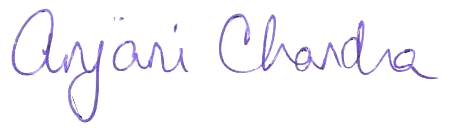 Anjani Chandra